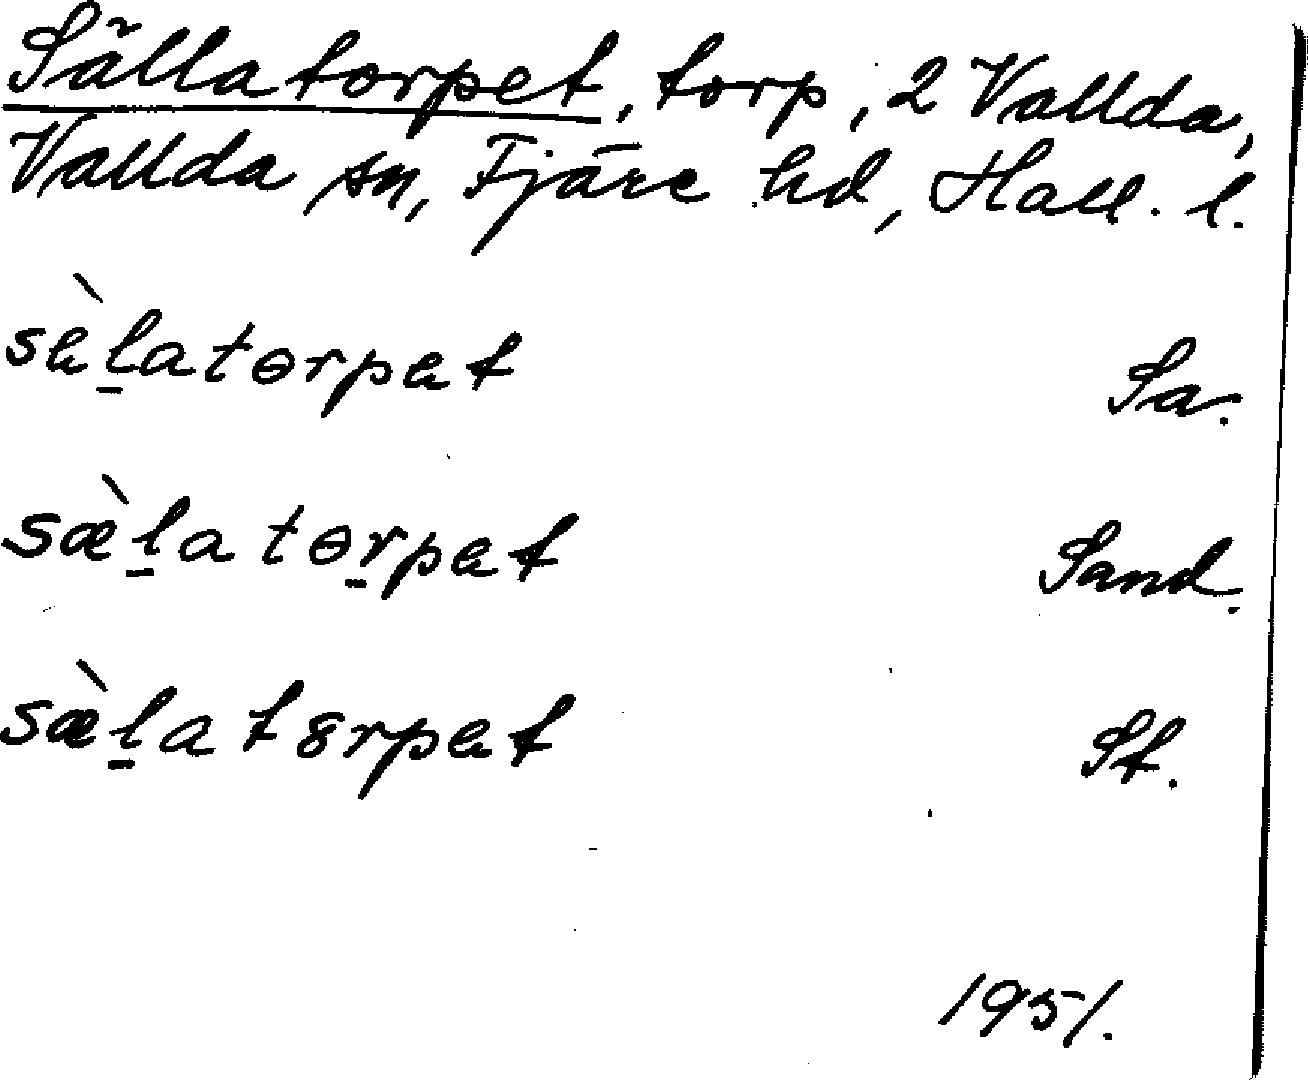 Sällatorpet, torp, 2 Vallda,
Vallda sn, Fjäre hd, Hall. l.
sὲl̠atɵrpet Sa.
sæ̀l̠atɵr̠pet Sand.
sæ̀l̠at8rpet St.
1951.